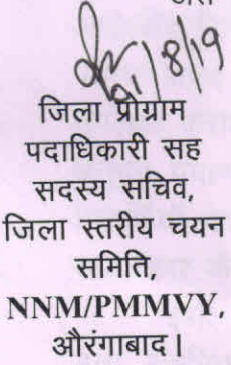 01/8/19
जिला प्रोग्राम
पदाधिकारी सह
सदस्य सचिव,
जिला स्तरीय चयन
समिति,
NNM/PMMVY,
औरंगाबाद।